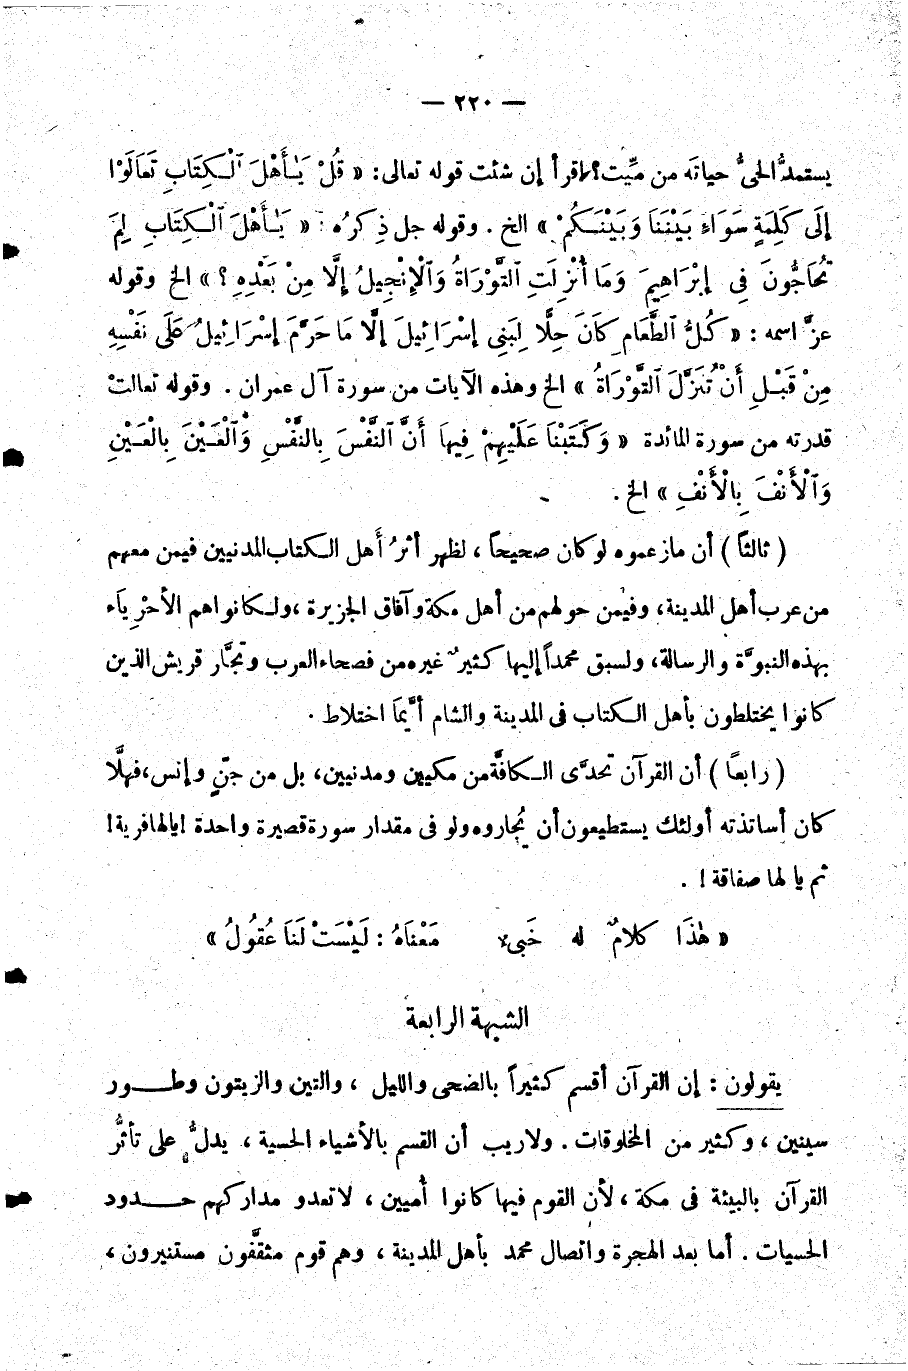 — ٢٢٠ —
يستمدُّ الحىُّ حياتَه من ميِّت؟! اقرأ إن شئت قوله تعالى: « قُلْ يَـٰأَهْلَ ٱلْكِتَابِ تَعَالَوْا
إِلَى كَلِمَةٍ سَوَاءِ بَيْنَنَا وَبَيْنَكُمْ » الخ . وقوله جل ذِكرُه : « يَـٰأَهْلَ ٱلْكِتَابِ لِمَ
تُحَاجُّونَ فِى إِبْرَاهِيمَ وَمَا أُنْزِلَتِ ٱلتَّوْرَاةُ وَٱلْإِنْجِيلُ إِلَّا مِنْ بَعْدِهِ ؟ » الخ وقوله
عزَّ اسمه : « كُلُّ ٱلطَّعَامِ كَانَ حِلًّا لِبَنِى إِسْرَائِيلَ إِلَّا مَا حَرَّمَ إِسْرَائِيلُ عَلَى نَفْسِهِ
مِنْ قَبْلِ أَنْ تُنَزَّلَ ٱلتَّوْرَاةُ » الخ وهذه الآيات من سورة آل عمران . وقوله تعالتْ
قدرته من سورة المائدة « وَكَتَبْنَا عَلَيْهِمْ فِيهَا أَنَّ ٱلنَّفْسَ بِالنَّفْسِ وَٱلْعَيْنَ بِالْعَيْنِ
وَٱلْأَنْفَ بِالْأَنْفِ » الخ .
( ثالثاً ) أن مازعموه لوكان صحيحاً ، لظهر أثرُ أهل الكتاب المدنيين فيمن معهم
من عرب أهل المدينة، وفيمن حولهم من أهل مكة وآفاق الجزيرة ، ولكانوا هم الأحْرِياَء
بهذه النبوَّة والرسالة، ولسبق محمداً إليها كثيرٌ غيره من فصحاء العرب وتجَّار قريش الذين
كانوا يختلطون بأهل الكتاب فى المدينة والشام أيَّما اختلاط .
( رابعاً ) أن القرآن تحدَّى الكافَّة من مكيين ومدنيين، بل من جنّ وإنس، فهلَّا
كان أساتذته أولئك يستطيعون أن يُجاروه ولو فى مقدار سورة قصيرة واحدة ! يالها فرية!
ثم يا لها صفاقة ! .
« هٰذَا كلامٌ له خَبِىء مَعْنَاهُ : لَيْسَتْ لَنَا عُقُولُ »
الشبهة الرابعة
يقولون : إن القرآن أقسم كثيراً بالضحى والليل ، والتين والزيتون وطـــور
سينين ، وكثير من المخلوقات . ولاريب أن القسم بالأشياء الحسية ، يدلُّ على تأثرُّ
القرآن بالبيئة فى مكة ، لأن القوم فيها كانوا أُميين ، لاتعدو مداركهم حــدود
الحسيات . أما بعد الهجرة واتصال محمد بأهل المدينة ، وهم قوم مثقَّفون مستنيرون ،